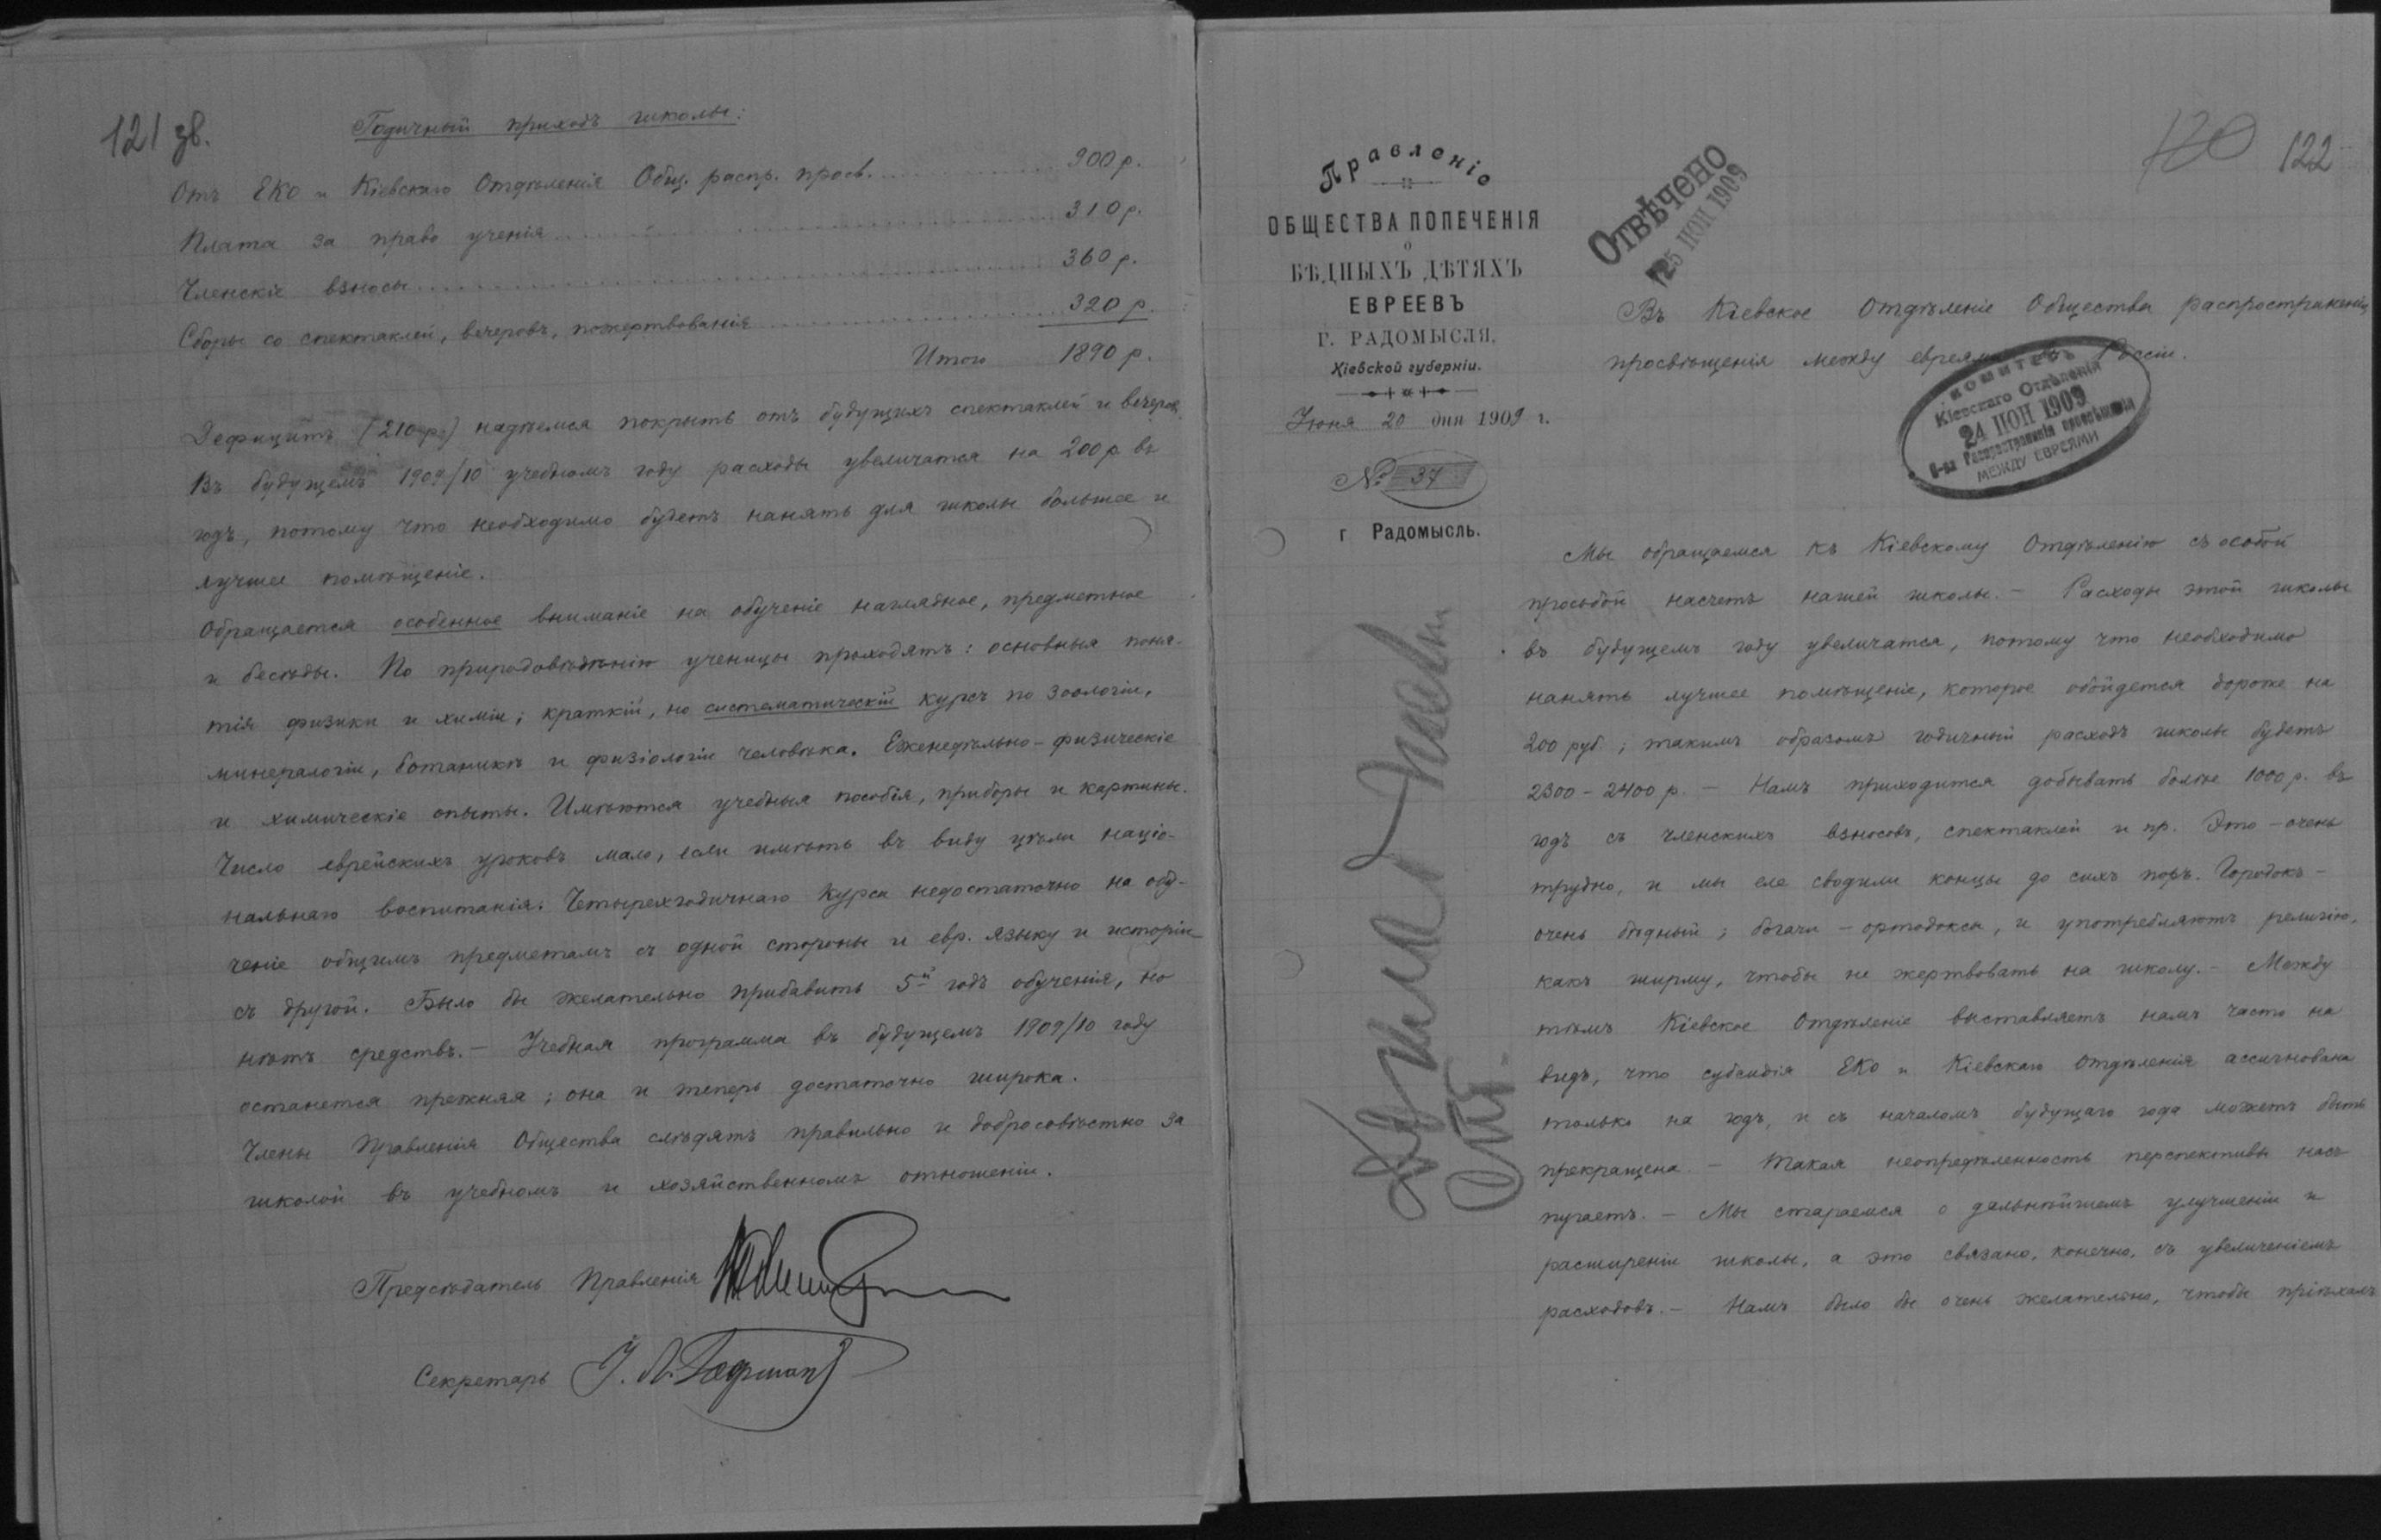 121 зв.
Годичный приходъ школы:
Отъ ЕКО и Кіевскаго Отдѣленія Общ. распр. просв. 900 р.
Плата за право ученія 310 р.
Членскіе взносы 360 р.
Сборы со спектаклей, вечеровъ, пожертвованія 320 р.
Итого 1890 р.
Дефицитъ (210 р.) надѣемся покрыть отъ будущихъ спектаклей и вечеров.
Въ будущемъ 1909/10 учебномъ году расходы увеличатся на 200 р въ
годъ, потому что необходимо будетъ нанять для школы большее и
лучшее помѣщеніе.
Обращается особенное вниманіе на обученіе наглядное, предметное
и бесѣды. По природовѣдѣнію ученицы проходятъ: основныя поня-
тія физики и химіи; краткій, но систематическій курсъ по зоологіи,
минералогіи, ботаникѣ и физіологіи человѣка. Еженедѣльно - физическіе
и химическіе опыты. Имѣются учебныя пособія, приборы и картины.
Число еврейскихъ уроковъ мало, если имѣть въ виду цѣли націо-
нальнаго воспитанія. Четырехгодичнаго курса недостаточно на обу-
ченіе общимъ предметамъ съ одной стороны и евр. языку и исторіи
съ другой. Было бы желательно прибавить 5й годъ обученія, но
нѣтъ средствъ. - Учебная программа въ будущемъ 1909/10 году
останется прежняя; она и теперь достаточно широка.
Члены Правленія Общества слѣдятъ правильно и добросовѣстно за
школой въ учебномъ и хозяйственномъ отношеніи.
Предсѣдатель Правленія
Секретарь
120 122
Правленіе
ОБЩЕСТВА ПОПЕЧЕНІЯ
о
БѢДНЫХЪ ДѢТЯХЪ
ЕВРЕЕВЪ
Г. РАДОМЫСЛЯ,
Кіевской губерніи.
Іюня 20 дня 1909 г.
№ 37
г Радомысль.
Отвѣчено
25 ІЮН 1909
Въ Кіевское Отдѣленіе Общества распространенія
просвѣщенія между евреями въ Россіи.
КОМИТЕТЪ
Кіевскаго Отдѣленія
24 ІЮН 1909
О-ва Распространенія просвѣщенія
МЕЖДУ ЕВРЕЯМИ
Мы обращаемся къ Кіевскому Отдѣленію съ особой
просьбой насчетъ нашей школы. - Расходы этой школы
въ будущемъ году увеличатся, потому что необходимо
нанять лучшее помѣщеніе, которое обойдется дороже на
200 руб.; такимъ образомъ годичный расходъ школы будетъ
2300 - 2400 р. - Намъ приходится добывать болѣе 1000 р. въ
годъ съ членскихъ взносовъ, спектаклей и пр. Это - очень
трудно, и мы еле сводили концы до сихъ поръ. Городокъ -
очень бѣдный; богачи - ортодоксы, и употребляютъ религію,
какъ ширму, чтобы не жертвовать на школу. - Между
тѣмъ Кіевское Отдѣленіе выставляетъ намъ часто на
видъ, что субсидія ЕКО и Кіевскаго Отдѣленія ассигнована
только на годъ, и съ началомъ будущаго года можетъ быть
прекращена. - Такая неопредѣленность перспективы насъ
пугаетъ. - Мы стараемся о дальнѣйшемъ улучшеніи и
расширеніи школы, а это связано, конечно, съ увеличеніемъ
расходовъ. - Намъ было бы очень желательно, чтобы пріѣхалъ